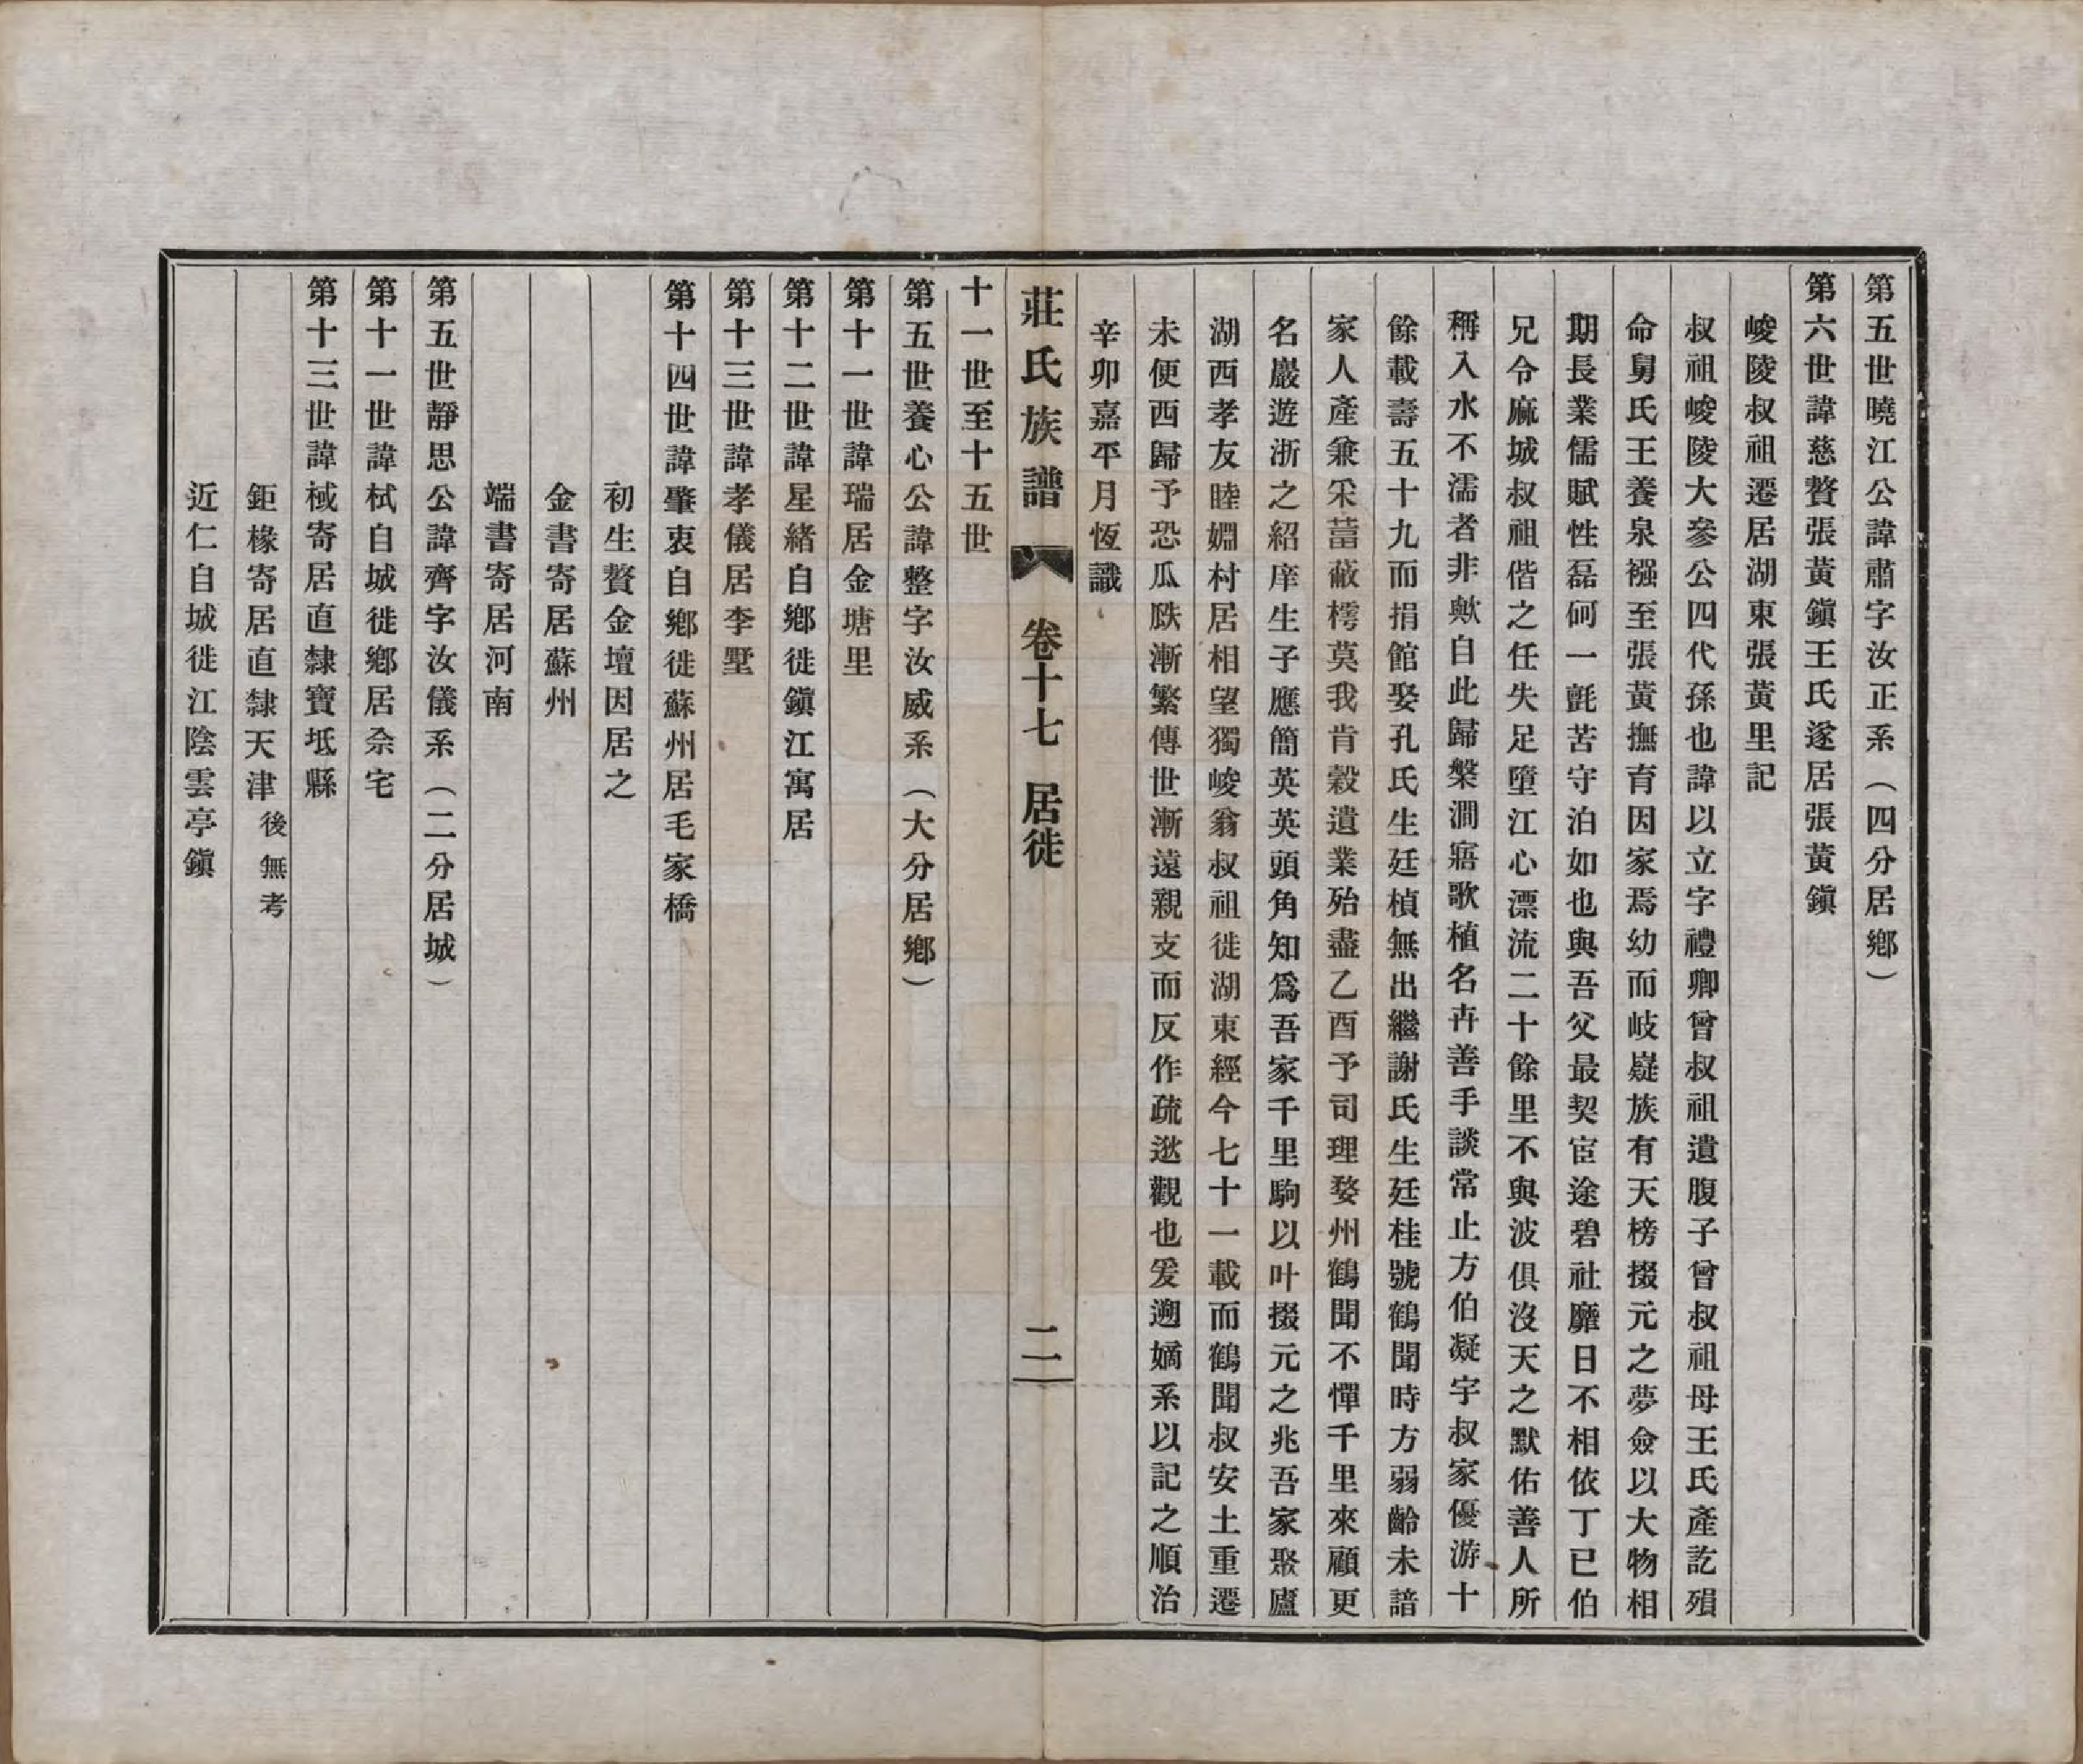 第五世曉江公諱肅字汝正系（四分居鄉）
第六世諱慈贅張黃鎭王氏遂居張黃鎭
峻陵叔祖遷居湖東張黃里記
叔祖峻陵大參公四代孫也諱以立字禮卿曾叔祖遺腹子曾叔祖母王氏產訖殞
命舅氏王養泉襁至張黃撫育因家焉幼而岐嶷族有天榜掇元之夢僉以大物相
期長業儒賦性磊砢一氈苦守泊如也與吾父最契宦途碧社靡日不相依丁已伯
兄令麻城叔祖偕之任失足墮江心漂流二十餘里不與波俱沒天之默佑善人所
稱入水不濡者非歟自此歸槃澗寤歌植名卉善手談常止方伯凝宇叔家優游十
餘載壽五十九而捐館娶孔氏生廷楨無出繼謝氏生廷桂號鶴聞時方弱齡未諳
家人產兼釆葍蔽樗莫我肯穀遺業殆盡乙酉予司理婺州鶴聞不憚千里來顧更
名巖遊浙之紹庠生子應簡英英頭角知爲吾家千里駒以叶掇元之兆吾家聚廬
湖西孝友睦婣村居相望獨峻翁叔祖徙湖東經今七十一載而鶴聞叔安土重遷
未便西歸予恐瓜瓞漸繁傳世漸遠親支而反作疏逖觀也爰遡嫡系以記之順治
辛卯嘉平月恆識
莊氏族譜 卷十七 居徙 二
十一世至十五世
第五世養心公諱整字汝威系（大分居鄉）
第十一世諱瑞居金塘里
第十二世諱星緒自鄉徙鎭江寓居
第十三世諱孝儀居李墅
第十四世諱肇衷自鄉徙蘇州居毛家橋
初生贅金壇因居之
金書寄居蘇州
端書寄居河南
第五世靜思公諱齊字汝儀系（二分居城）
第十一世諱栻自城徙鄉居佘宅
第十三世諱棫寄居直隸寶坻縣
鉅椽寄居直隸天津後無考
近仁自城徙江陰雲亭鎭